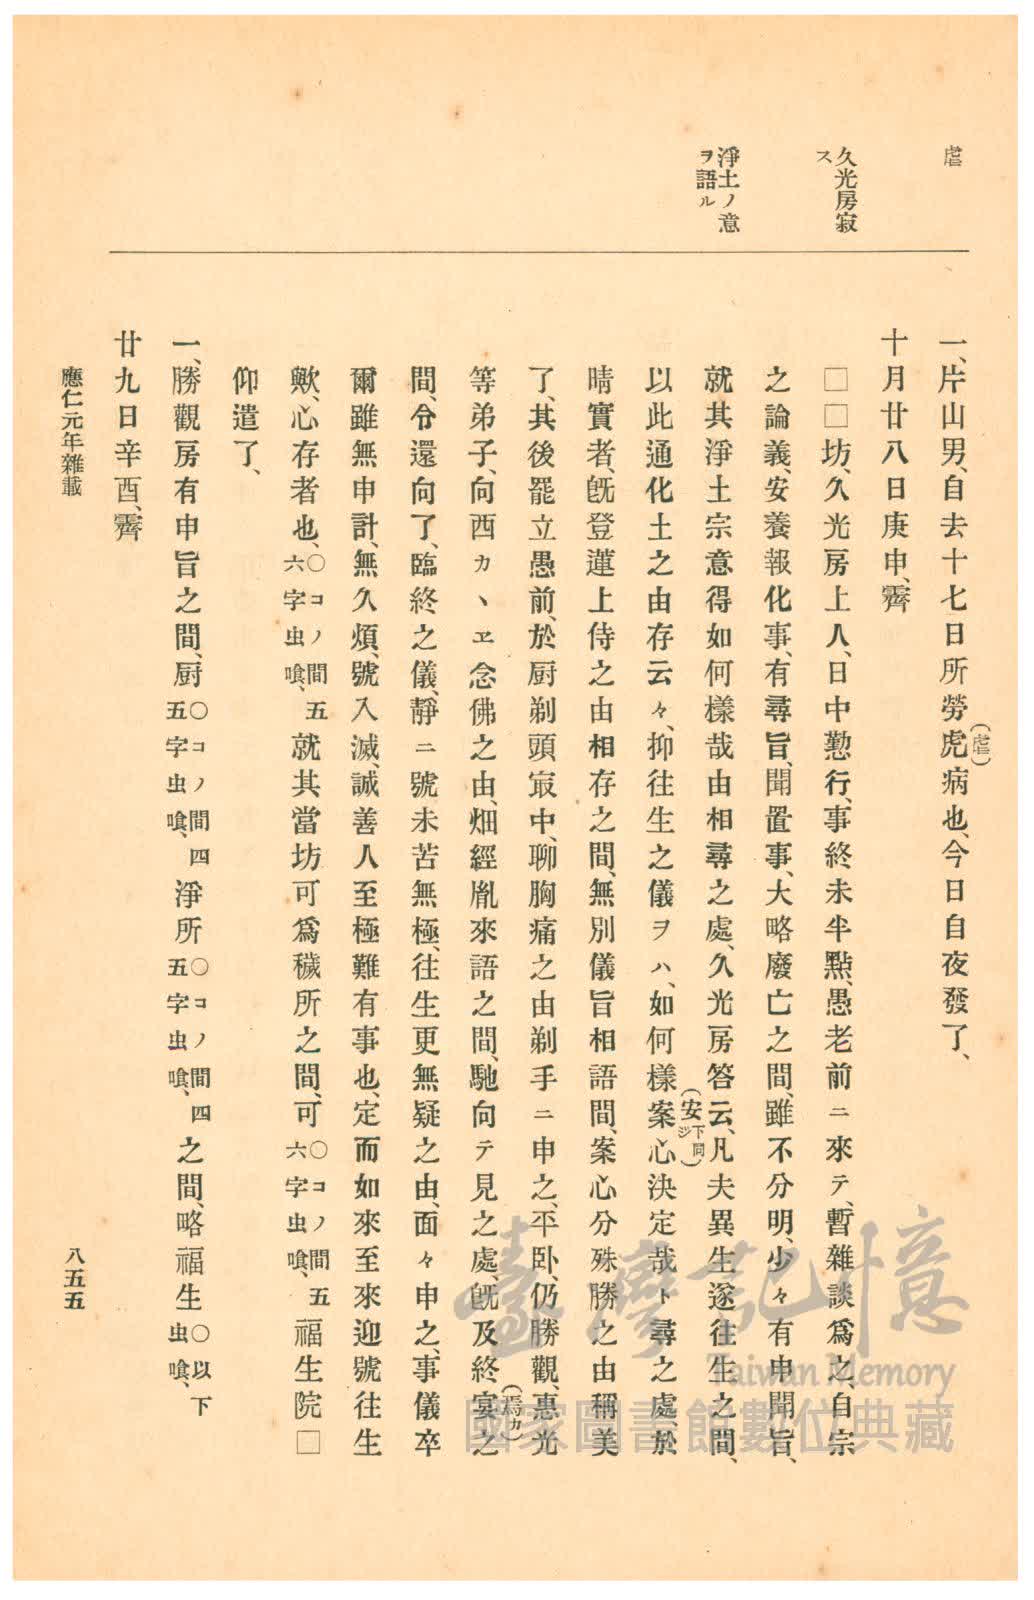 虐
久光房寂
ス
淨土ノ意
ヲ語ル
一、片山男、自去十七日所勞虎(虐)病也、今日自夜發了、
十月廿八日庚申、霽
□□坊、久光房上人、日中懃行、事終未半點、愚老前ニ來テ、暫雜談爲之、自宗
之論義、安養報化事、有尋旨、聞置事、大略廢亡之間、雖不分明、少々有申聞旨、
就其淨土宗意得如何樣哉由相尋之處、久光房答云、凡夫異生遂往生之間、
以此通化土之由存云々、抑往生之儀ヲハ、如何樣案(安下同ジ)心決定哉ト尋之處、於
晴實者、既登蓮上侍之由相存之間、無別儀旨相語間、案心分殊勝之由稱美
了、其後罷立愚前、於厨剃頭㝡中、聊胸痛之由剃手ニ申之、平臥、仍勝觀、惠光
等弟子、向西カヽヱ念佛之由、畑經胤來語之間、馳向テ見之處、既及終宴(焉カ)之
間、令還向了、臨終之儀、靜ニ號未苦無極、往生更無疑之由、面々申之、事儀卒
爾雖無申計、無久煩、號入滅、誠善人至極難有事也、定而如來至來迎號往生
歟、心存者也、〇コノ間五六字虫喰、就其當坊可爲穢所之間、可〇コノ間五六字虫喰、福生院□
仰遣了、
一、勝觀房有申旨之間、厨〇コノ間四五字虫喰、淨所〇コノ間四五字虫喰、之間、略福生〇以下虫喰、
廿九日辛酉、霽
應仁元年雜載
八五五
臺灣記憶
Taiwan Memory
國家圖書館數位典藏